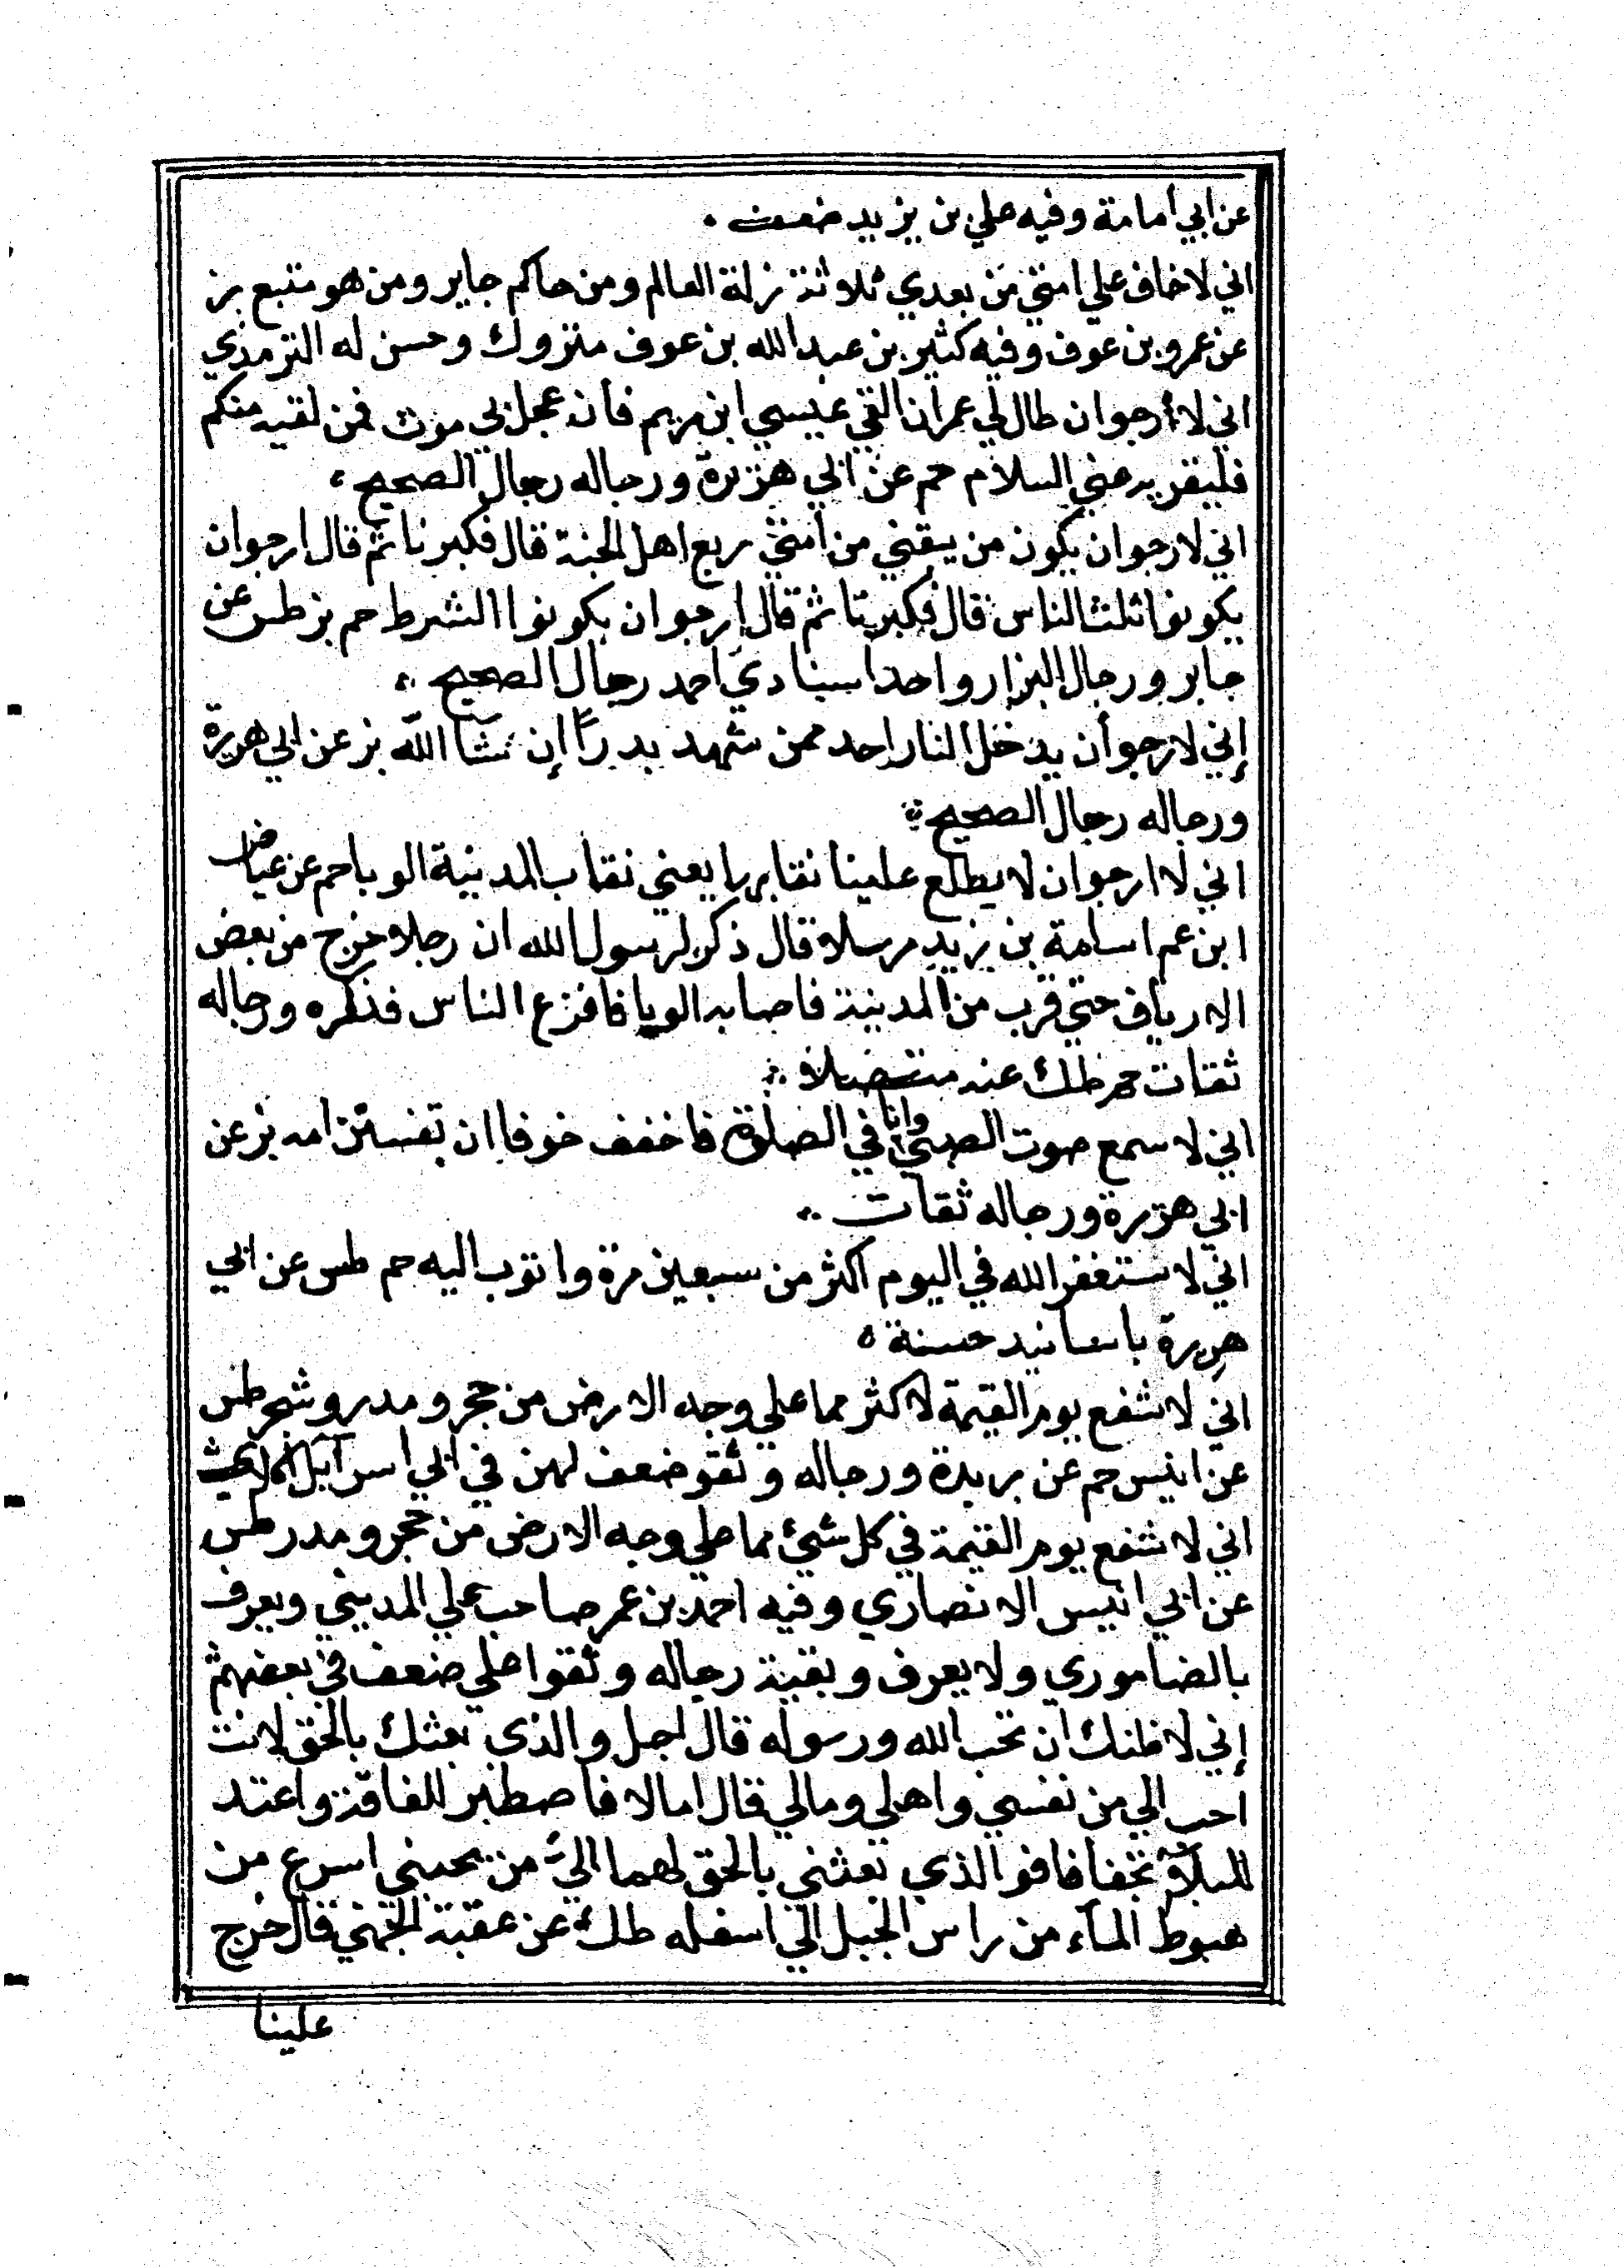 عن ابي أمامة وفيه علي بن يزيد ضعف .
اني لاخاف علي امتي من بعدي ثلاثة زلة العالم ومن حاكم جاير ومن هو متبع بز
عن عمرو بن عوف وفيه كثير بن عبد الله بن عوف متروك وحسن له الترمذي
اني لاأرجوان طال لي عمران القي عيسي ابن مريم فان عجل بي موت فمن لقيه منكم
فليقريه عني السلام حم عن ابي هريرة ورجاله رجال الصحيح
اني لارجوان يكون من يبقني من امتي ربع اهل الجنة قال فكبرنا ثم قال ارجوان
يكونوا ثلث الناس قال فكبرنا ثم قال ارجوان يكونوا الشرط حم بز طس عن
جابر ورجال البزار واحد اسنادي احمد رجال الصحيح
إني لارجوأن يدخل النار احد ممن شهد بدراً إن شآ الله بز عن ابي هريرة
ورجاله رجال الصحيح
اني لاارجوان لا يطلع علينا نقابها يعني نقاب المدنية الوبا حم عن عياض
ابن عم اسامة بن زيد مرسلا قال ذكر لرسول الله ان رجلا خرج من بعض
الارياف حتي قرب من المدينة فاصابه الوبا فافزع الناس فذكره ورجاله
ثقات حم طك عنه متصلا
اني لاسمع صوت الصبي وانا في الصلوة فاخفف خوفا ان تفستن امه بز عن
ابي هريرة ورجاله ثقات
اني لاستغفر الله في اليوم اكثر من سبعين مرة واتوب اليه حم طس عن ابي
هريرة باسانيد حسنة
اني لاشفع يوم القيمة لاكثر مما علي وجه الارض من حجر ومدر وشجر طس
عن انيس حم عن بريدة ورجاله وثقو ضعف لهن في ابي اسرآيل
اني لاشفع يوم القيمة في كل شيئ مما علي وجه الارض من حجر ومدر طس
عن ابي انيس الانصاري وفيه احمد بن عمر صاحب علي المديني ويعرف
بالضاموري ولا يعرف وبقية رجاله وثقوا علي ضعف في بعضهم
إني لاظنك ان تحب الله ورسوله قال اجل والذي بعثك بالحق لانت
احب الي من نفسي واهلي ومالي قال امالا فاصطبر للفاقة واعتد
للبلآء تجفافا فو الذي بعثني بالحق لهما اليٌ من يحبني اسرع من
هبوط المآء من راس الجبل الي اسفله طك عن عقبة الجهني قال خرج
علينا